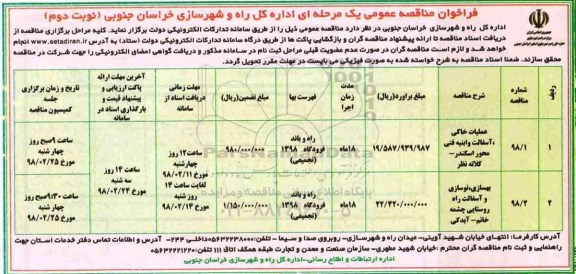 فراخوان مناقصه عمومی یک مرحله ای اداره کل راه و شهرسازی خراسان جنوبی (نوبت دوم)
اداره کل راه و شهرسازی خراسان جنوبی در نظر دارد مناقصه عمومی ذیل را از طریق سامانه تدارکات الکترونیکی دولت برگزار نماید. کلیه مراحل برگزاری مناقصه از
دریافت اسناد مناقصه تا ارائه پیشنهاد مناقصه گران و بازگشایی پاکت ها از طریق درگاه سامانه تدارکات الکترونیکی دولت (ستاد) به آدرس www.setadiran.ir انجام
خواهد شد و لازم است مناقصه گران در صورت عدم عضویت قبلی مراحل ثبت نام در سامانه مذکور و دریافت گواهی امضای الکترونیکی را جهت شرکت در مناقصه
محقق سازند. ضمنا اسناد مناقصه به شرح خواسته شده به صورت فیزیکی می بایست در مهلت مقرر تحویل گردد.
ردیف
شماره مناقصه
شرح مناقصه
مبلغ برآورد(ریال)
مدت زمان اجرا
فهرست بها
مبلغ تضمین(ریال)
مهلت زمانی دریافت اسناد از سامانه
آخرین مهلت ارائه پاکت ارزیابی و پیشنهاد قیمت و بارگذاری اسناد در سامانه
تاریخ و زمان برگزاری جلسه کمیسیون مناقصه
۱
۹۸/۱
عملیات خاکی ،آسفالت وابنیه فنی محور اسکندر- کلاته نظر
۱۹/۵۸۷/۹۳۹/۹۸۷
۱۸ماه
راه و باند فرودگاه ۱۳۹۸ (تجمیعی)
۹۸۰/۰۰۰/۰۰۰
ساعت ۱۲ روز چهارشنبه مورخ ۹۸/۰۲/۱۱ لغایت ساعت ۱۴ روز شنبه مورخ ۹۸/۰۲/۱۴
ساعت ۱۴ روز سه شنبه مورخ ۹۸/۰۲/۲۴
ساعت ۹صبح روز چهار شنبه مورخ ۹۸/۰۲/۲۵
۲
۹۸/۲
بهسازی،نوسازی و آسفالت راه روستایی چشمه خاتم- آبدکی
۲۲/۴۲۰/۰۰۰/۰۰۰
۱۸ماه
راه و باند فرودگاه ۱۳۹۸ (تجمیعی)
۱/۱۵۰/۰۰۰/۰۰۰
ساعت ۹:۳۰صبح روز چهارشنبه مورخ ۹۸/۰۲/۲۵
آدرس کارفرما: انتهای خیابان شهید آوینی- میدان راه و شهرسازی- روبروی صدا و سیما - تلفن:
راهنمایی و ثبت نام مناقصه گران محترم :خیابان شهید مطهری- سازمان صنعت و معدن و تجارت طبقه همکف اتاق ۱۱۱ تلفن:
اداره ارتباطات و اطلاع رسانی-اداره کل راه و شهرسازی خراسان جنوبی